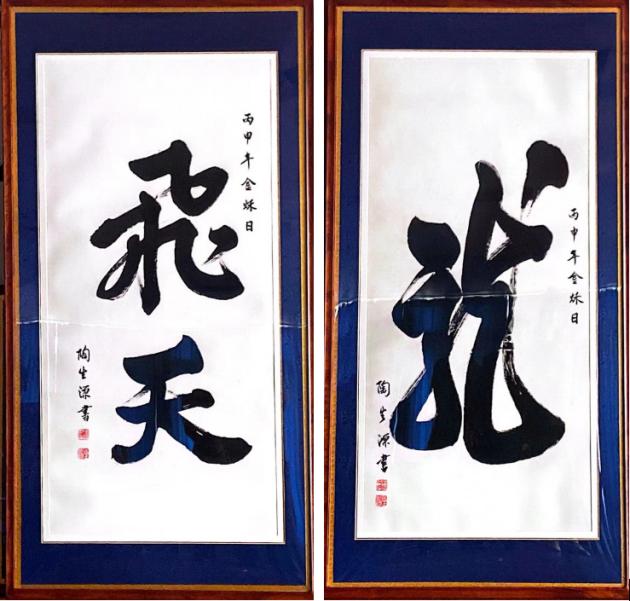 丙申年金秌日
飛天
陶生源書
丙申年金秌日
龙
陶生源書